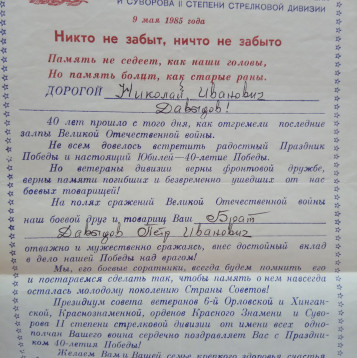 И СУВОРОВА II СТЕПЕНИ СТРЕЛКОВОЙ ДИВИЗИИ
9 мая 1985 года
Никто не забыт, ничто не забыто
Память не седеет, как наши головы,
Но память болит, как старые раны.
ДОРОГОЙ Николай Иванович
Давыдов!
40 лет прошло с того дня, как отгремели последние
залпы Великой Отечественной войны.
Не всем довелось встретить радостный Праздник
Победы и настоящий Юбилей—40-летие Победы.
Но ветераны дивизии верны фронтовой дружбе,
верны памяти погибших и безвременно ушедших от нас
боевых товарищей!
На полях сражений Великой Отечественной войны
наш боевой друг и товарищ Ваш Брат
Давыдов Пётр Иванович
отважно и мужественно сражаясь, внес достойный вклад
в дело нашей Победы над врагом!
Мы, его боевые соратники, всегда будем помнить его
и постараемся сделать так, чтобы память о нем навсегда
осталась молодому поколению Страны Советов!
Президиум совета ветеранов 6-й Орловской и Хинган-
ской, Краснознаменной, орденов Красного Знамени и Суво-
рова II степени стрелковой дивизии от имени всех одно-
полчан Вашего воина сердечно поздравляет Вас с Праздни-
ком 40-летия Победы!
Желаем Вам и Вашей семье крепкого здоровья, счастья